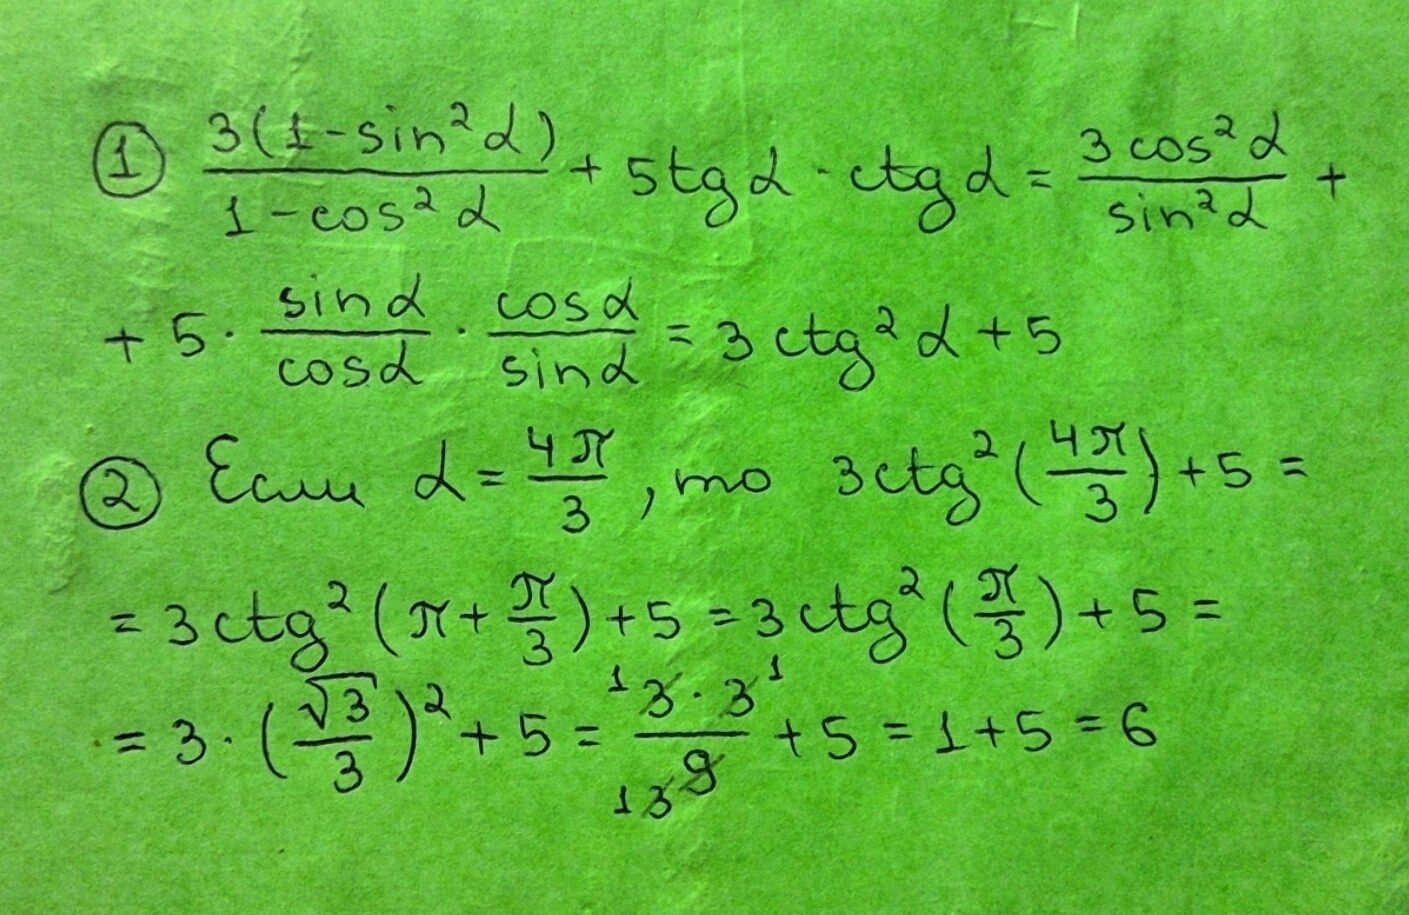 ① 3(1-sin²α)/(1-cos²α) + 5tgα · ctgα = 3cos²α/sin²α +
+ 5 · sinα/cosα · cosα/sinα = 3ctg²α + 5
② Если α = 4π/3, то 3ctg²(4π/3) + 5 =
= 3ctg²(π + π/3) + 5 = 3ctg²(π/3) + 5 =
= 3 · (√3/3)² + 5 = ¹3 · 3¹/₁₃9 + 5 = 1 + 5 = 6